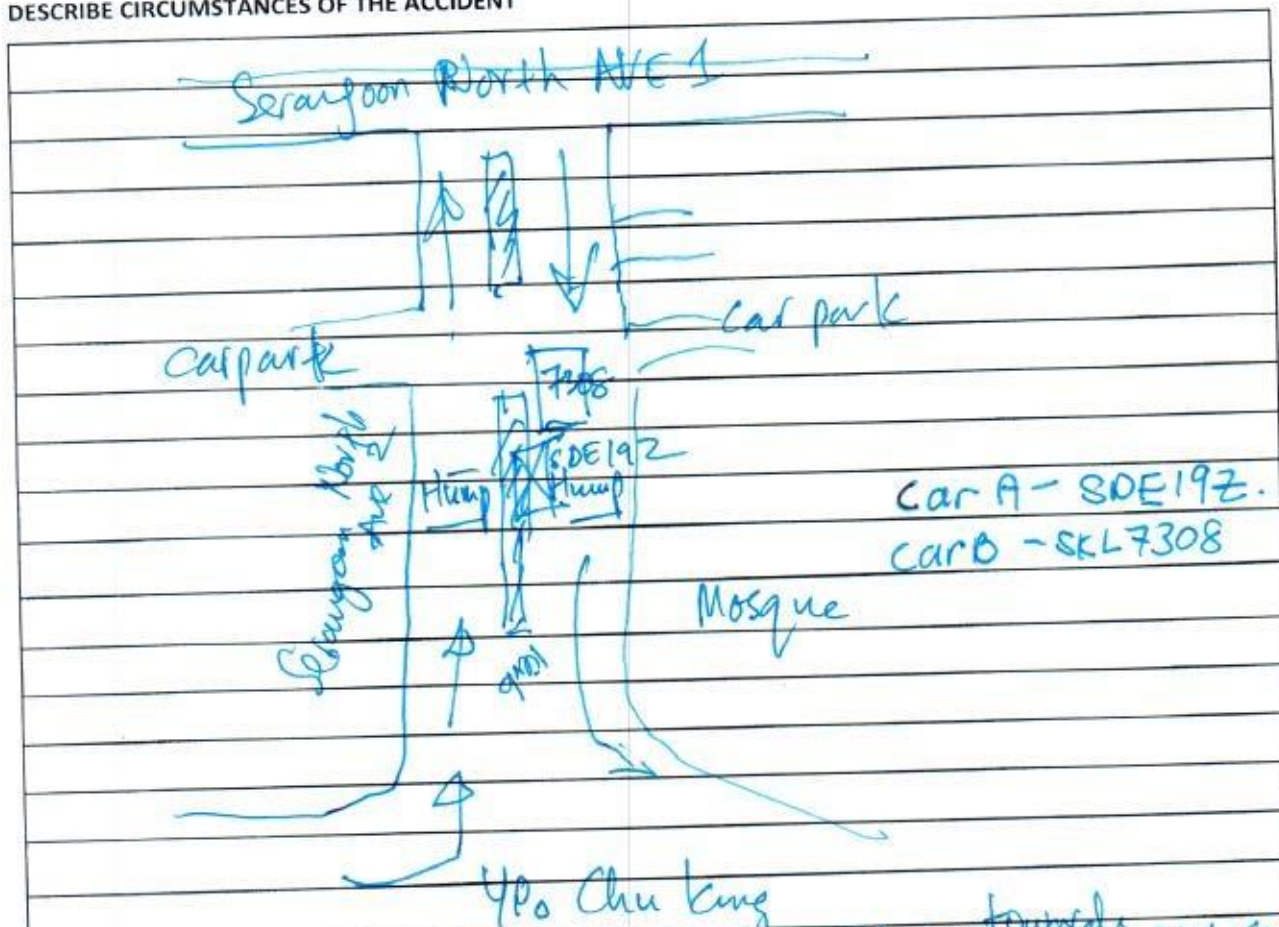 DESCRIBE CIRCUMSTANCES OF THE ACCIDENT
Serangoon North AVE 1
Car park
Carpark
7308
SDE19Z
Hump
Hump
Serangoon North Ave 2
Car A - SDE19Z.
Car B - SKL7308
Mosque
Kerb
Chu Kang
towards